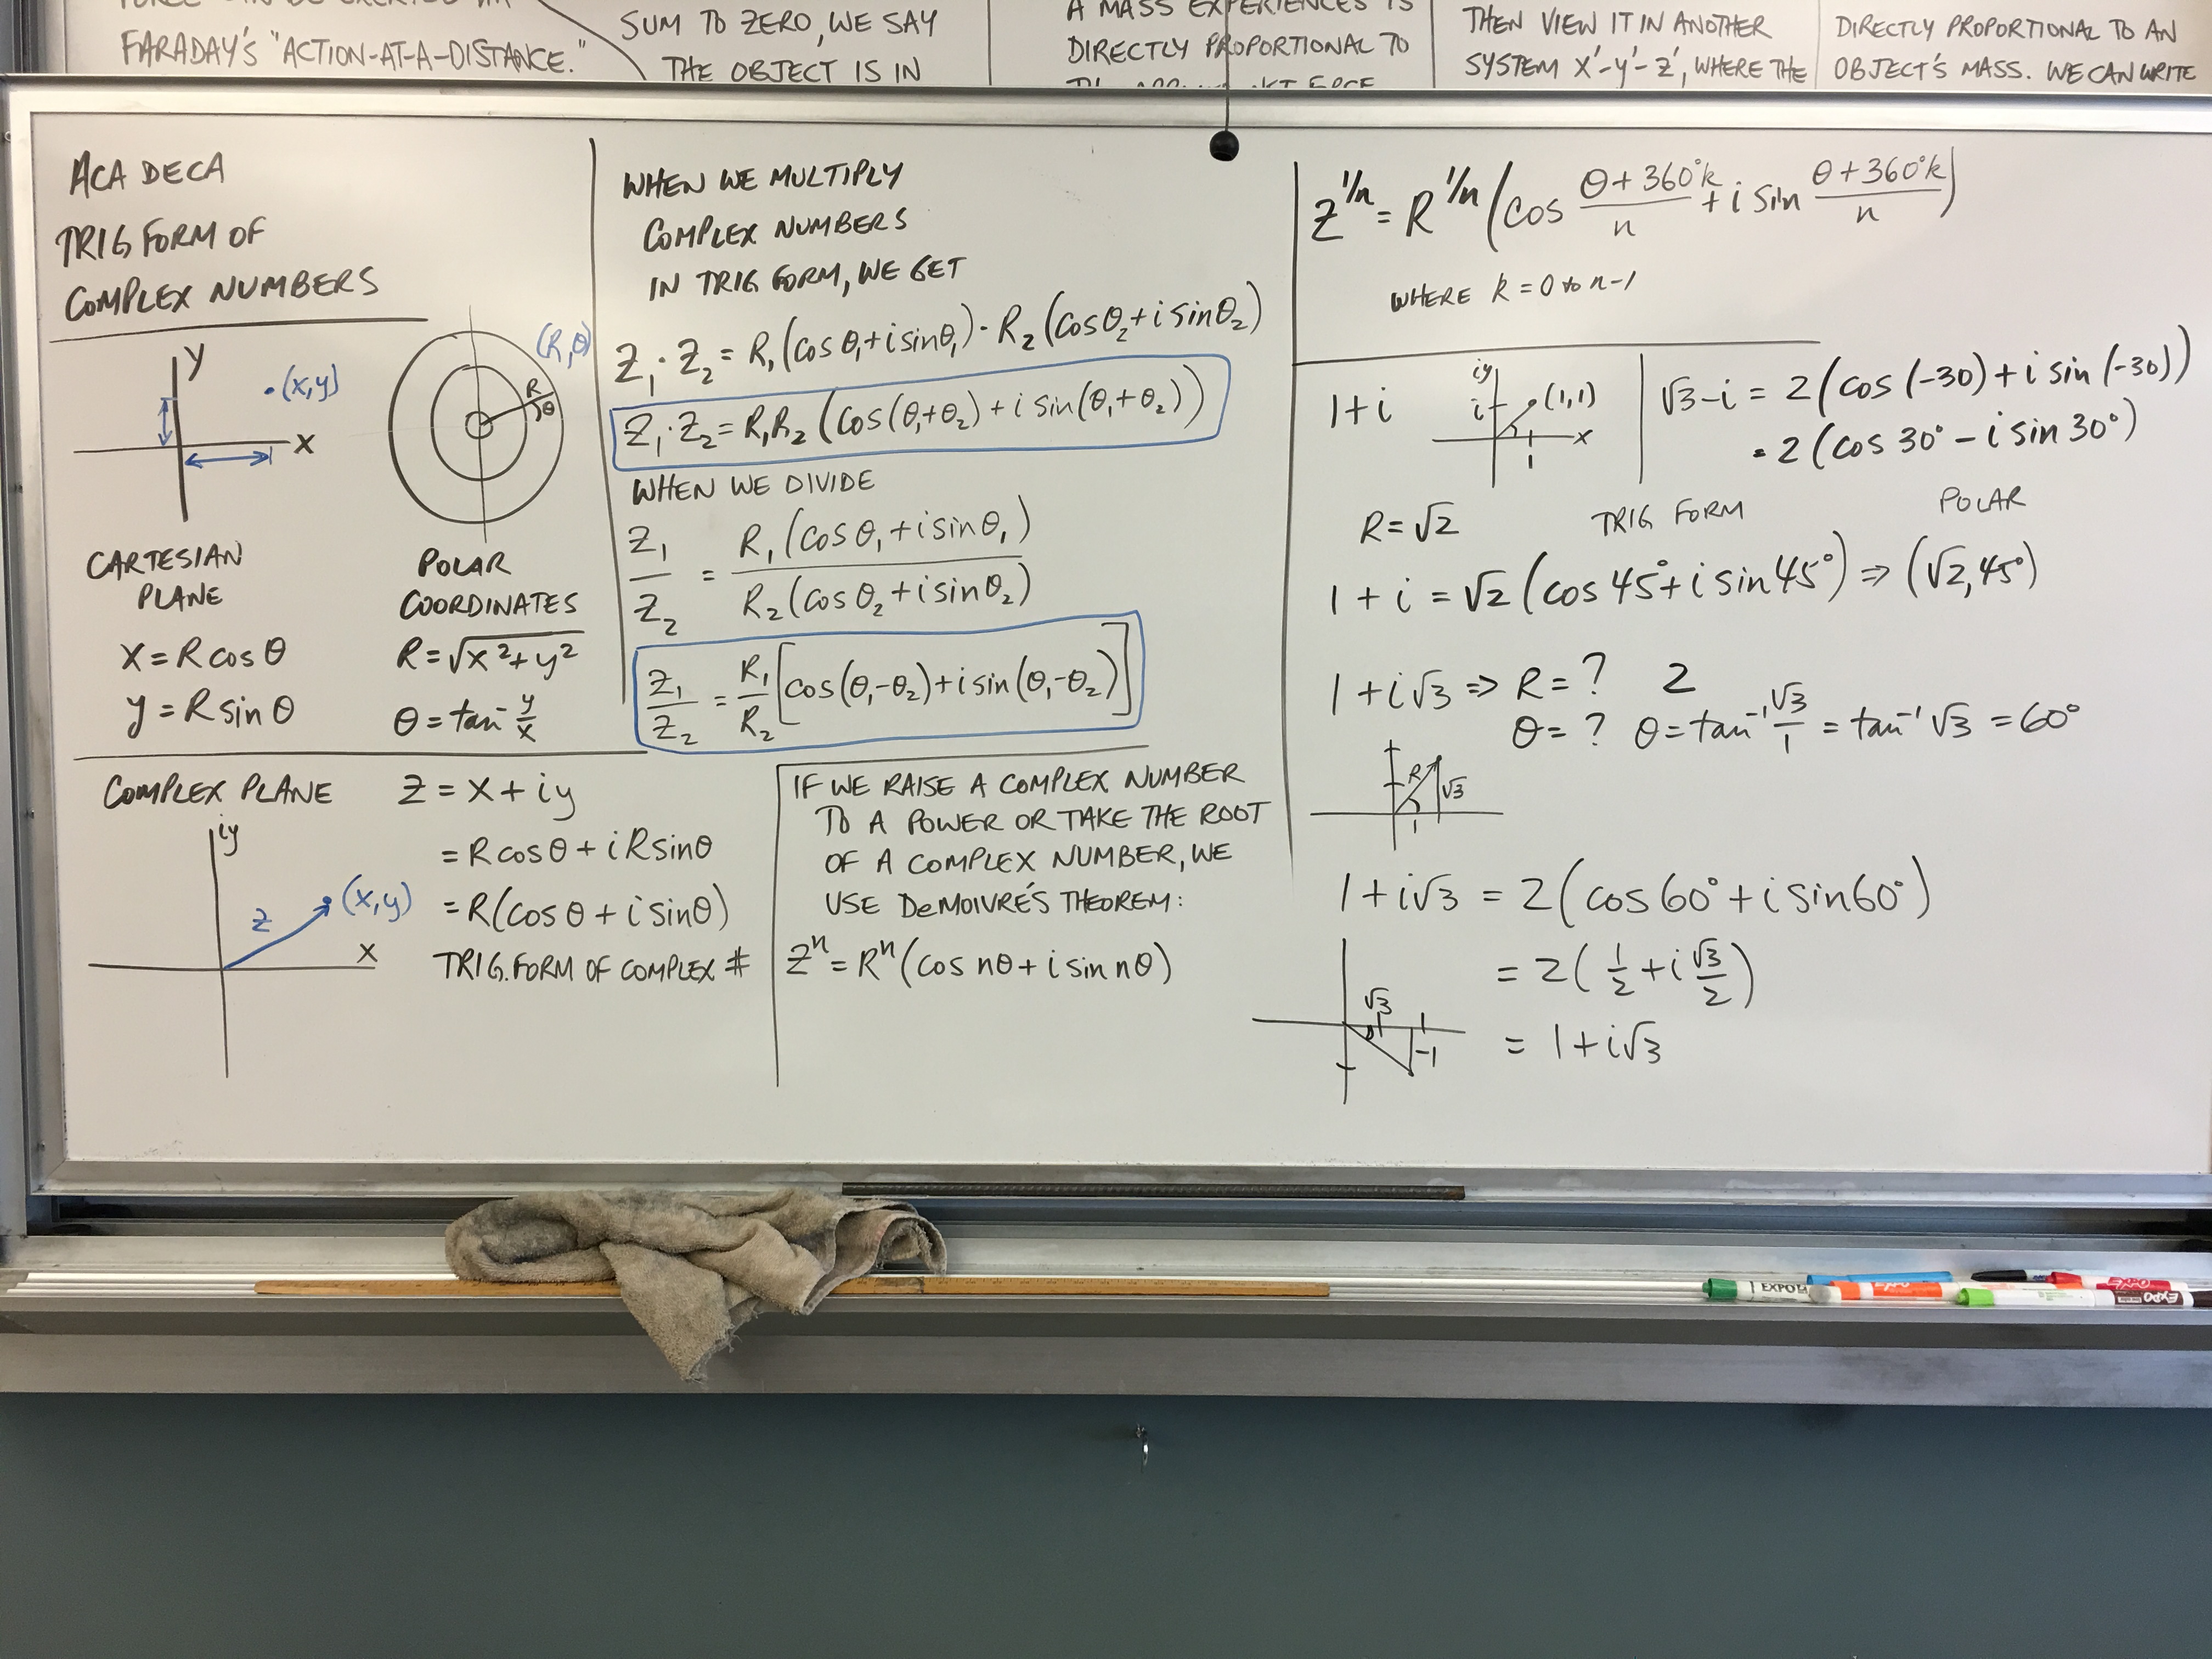 FARADAY'S "ACTION-AT-A-DISTANCE."
SUM TO ZERO, WE SAY
THE OBJECT IS IN
A MASS EXPERIENCES IS
DIRECTLY PROPORTIONAL TO
THEN VIEW IT IN ANOTHER
SYSTEM X'-Y'-Z', WHERE THE
DIRECTLY PROPORTIONAL TO AN
OBJECT'S MASS. WE CAN WRITE
ACA DECA
TRIG FORM OF
COMPLEX NUMBERS
y
(x,y)
x
(R,θ)
R
θ
CARTESIAN
PLANE
X = R cos θ
y = R sin θ
POLAR
COORDINATES
R = √x²+y²
θ = tan⁻ y/x
COMPLEX PLANE
iy
z
(x,y)
x
Z = X + iy
= R cos θ + i R sin θ
= R(cos θ + i sin θ)
TRIG. FORM OF COMPLEX #
WHEN WE MULTIPLY
COMPLEX NUMBERS
IN TRIG FORM, WE GET
Z₁ · Z₂ = R₁(cos θ₁ + i sin θ₁) · R₂(cos θ₂ + i sin θ₂)
Z₁ · Z₂ = R₁R₂ (cos(θ₁+θ₂) + i sin(θ₁+θ₂))
WHEN WE DIVIDE
Z₁/Z₂ = R₁(cos θ₁ + i sin θ₁)/R₂(cos θ₂ + i sin θ₂)
Z₁/Z₂ = R₁/R₂ [cos(θ₁-θ₂) + i sin(θ₁-θ₂)]
IF WE RAISE A COMPLEX NUMBER
TO A POWER OR TAKE THE ROOT
OF A COMPLEX NUMBER, WE
USE DeMOIVRE'S THEOREM:
Zⁿ = Rⁿ(cos nθ + i sin nθ)
Z^1/n = R^1/n (cos θ+360°k/n + i sin θ+360°k/n)
WHERE k = 0 to n-1
1+i
iy
i
(1,1)
x
1
√3-i = 2(cos(-30) + i sin(-30))
= 2(cos 30° - i sin 30°)
R = √2
TRIG FORM
POLAR
1 + i = √2 (cos 45° + i sin 45°) ⇒ (√2, 45°)
1 + i√3 ⇒ R = ? 2
θ = ? θ = tan⁻¹ √3/1 = tan⁻¹ √3 = 60°
R
√3
1
1 + i√3 = 2(cos 60° + i sin 60°)
= 2(1/2 + i √3/2)
= 1 + i√3
√3
1
-1
EXPO
EXPO